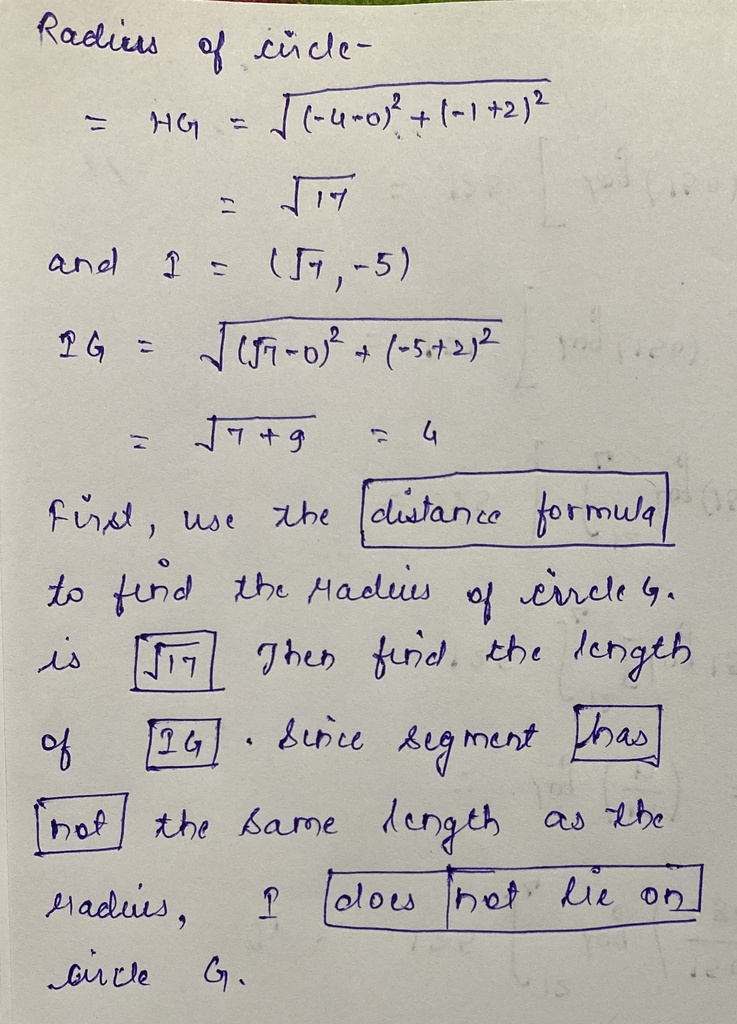 Radius of circle-
= HG = √(-4-0)² + (-1+2)²
= √17
and I = (√7, -5)
IG = √(√7-0)² + (-5+2)²
= √7+9 = 4
First, use the distance formula
to find the radius of circle G.
is √17 Then find the length
of IG. Since segment has
not the same length as the
radius, I does not lie on
circle G.